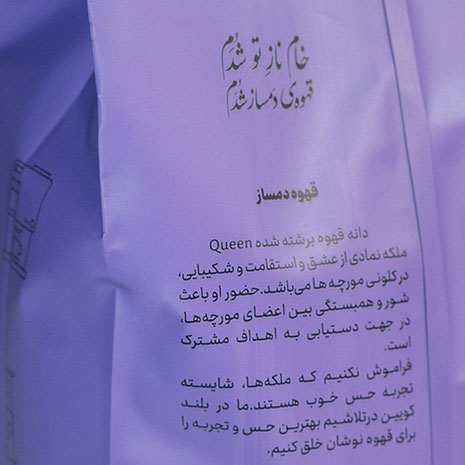 خام نازِ تو شدَم
قهوه‌ی دَمساز شُدَم
قهوه دمساز
دانه قهوه برشته شده Queen
ملکه نمادی از عشق و استقامت و شکیبایی،
در کلونی مورچه ها می‌باشد.حضور او باعث
شور و همبستگی بین اعضای مورچه‌ها،
در جهت دستیابی به اهداف مشترک
است.
فراموش نکنیم که ملکه‌ها، شایسته
تجربه حس خوب هستند.ما در بلند
کویین درتلاشیم بهترین حس و تجربه را
برای قهوه نوشان خلق کنیم.